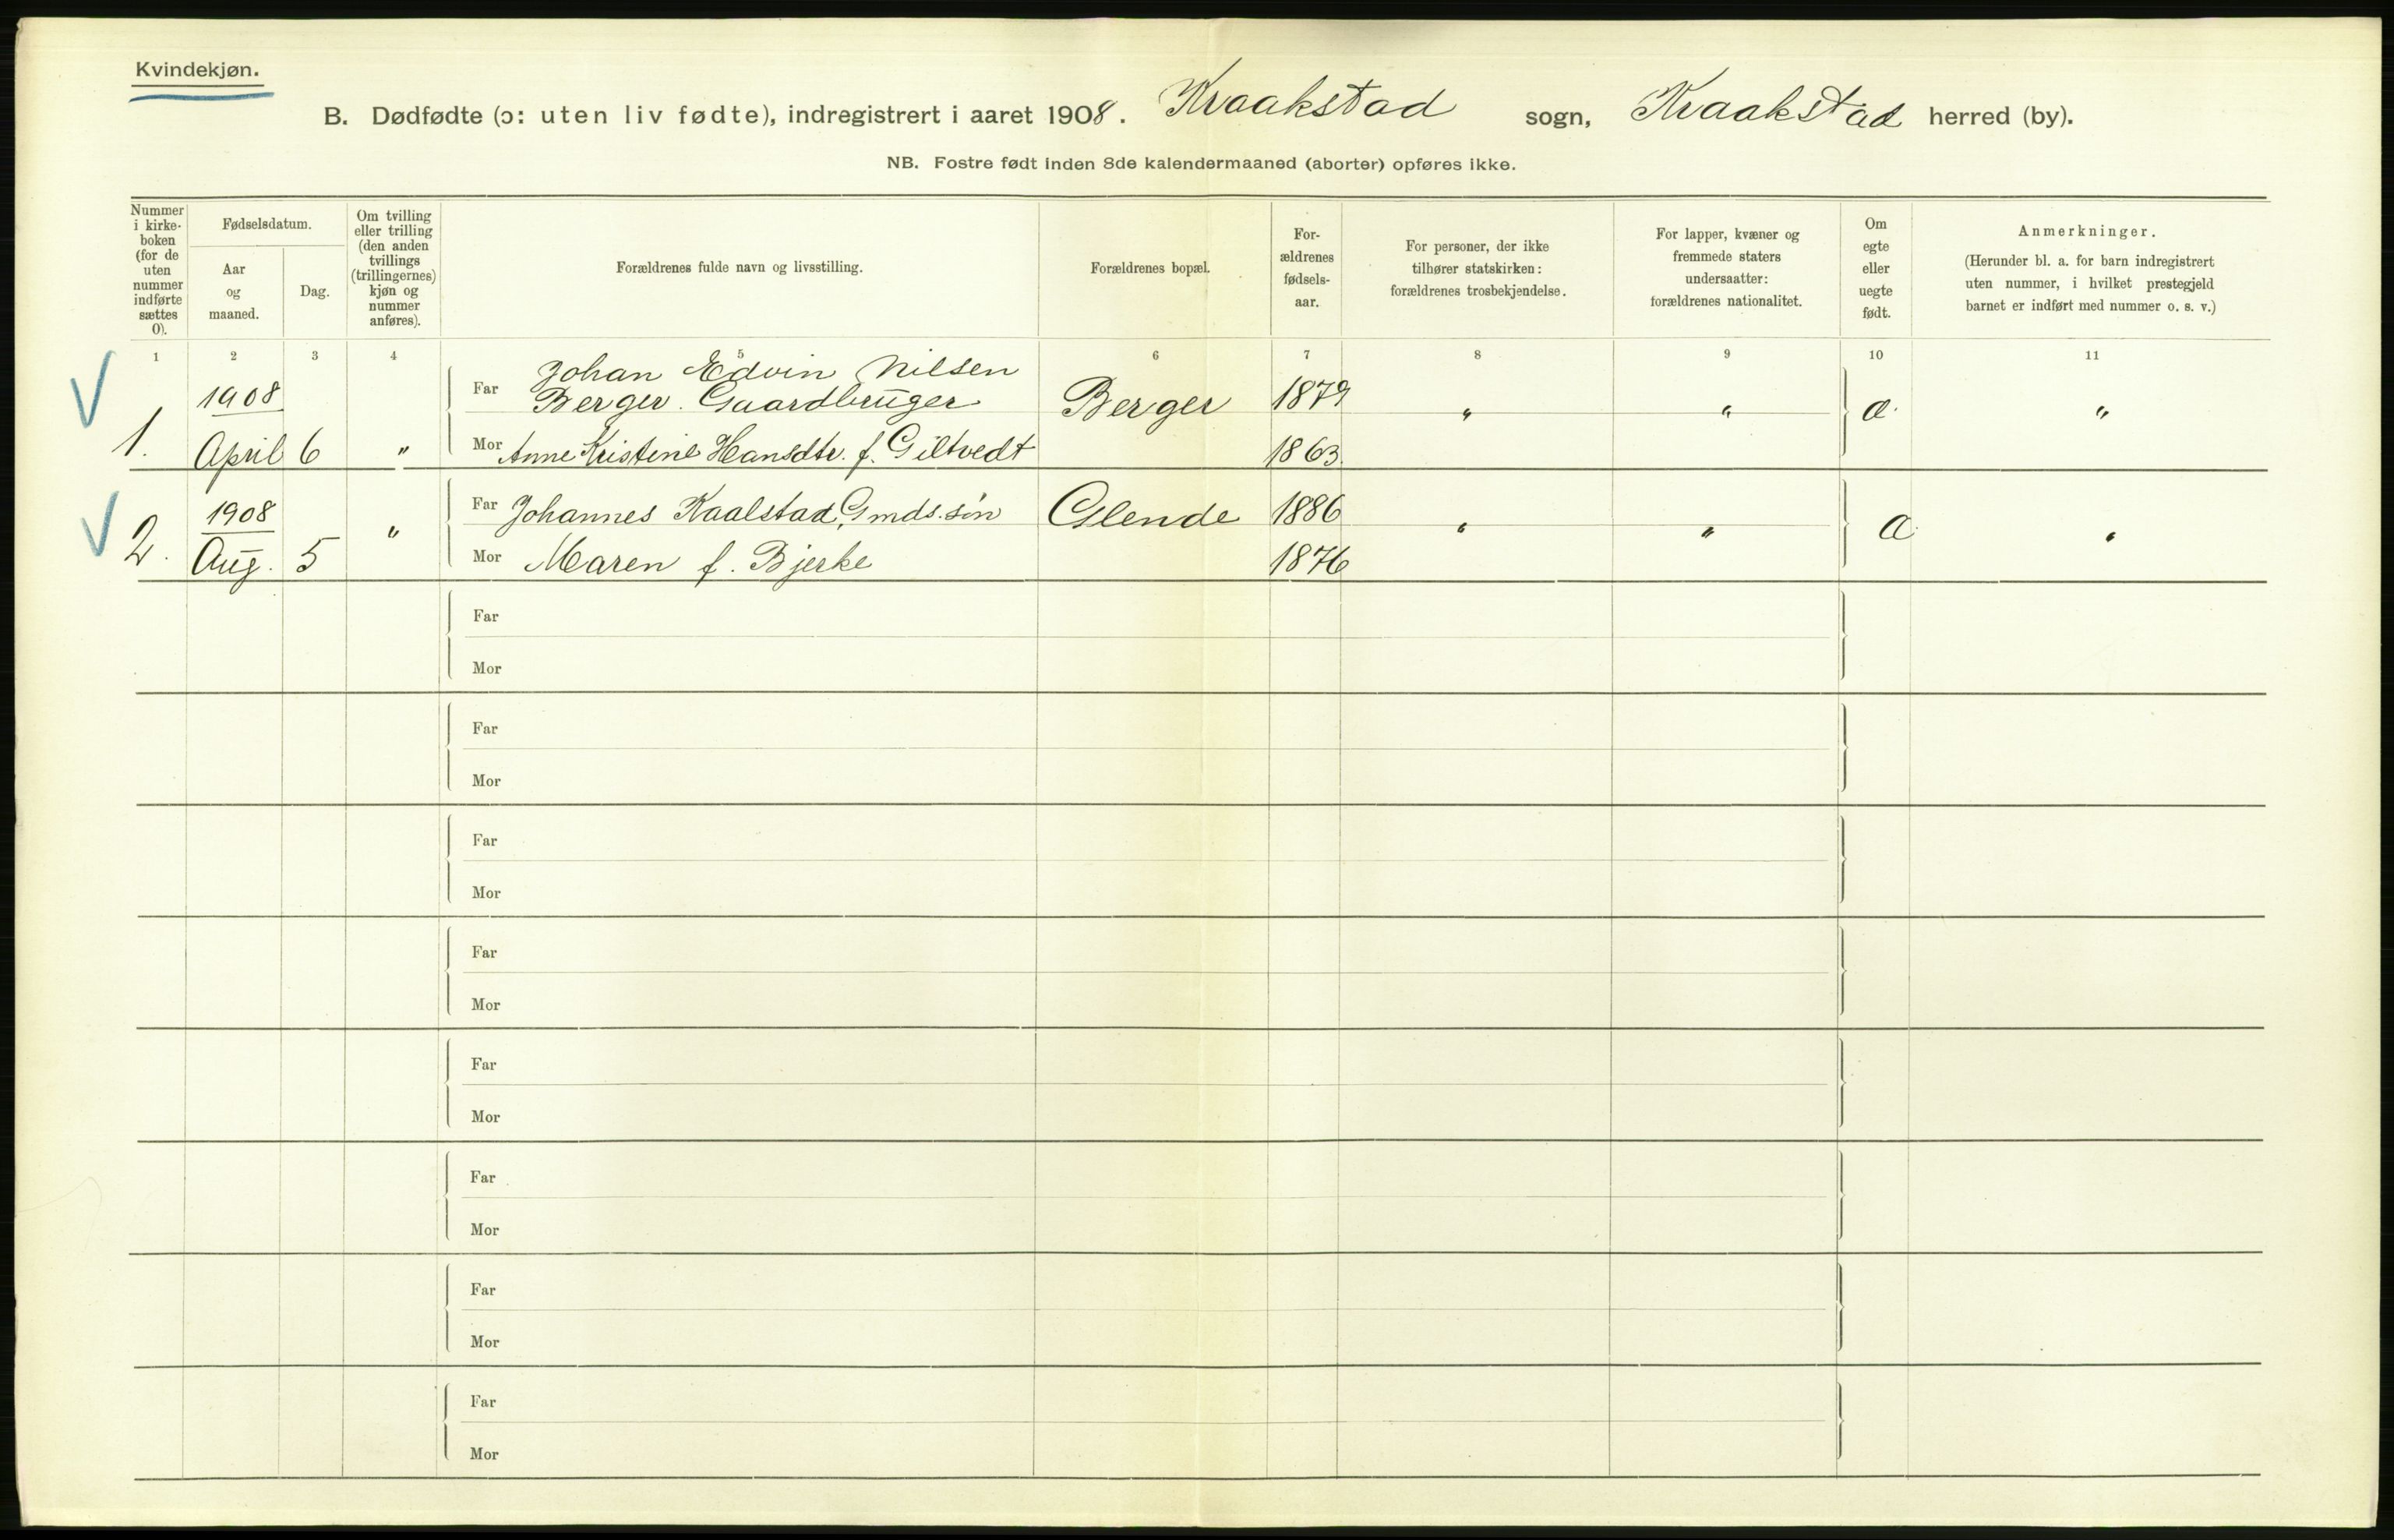 Kvindekjøn.
B. Dødfødte (ɔ: uten liv fødte), indregistrert i aaret 1908. Kraakstad sogn, Kraakstad herred (by).
NB. Fostre født inden 8de kalendermaaned (aborter) opføres ikke.
Nummer
i kirke-
boken
(for de
uten
nummer
indførte
sættes
0).
Fødselsdatum.
Aar
og
maaned.
Dag.
Om tvilling
eller trilling
(den anden
tvillings
(trillingernes)
kjøn og
nummer
anføres).
Forældrenes fulde navn og livsstilling.
Forældrenes bopæl.
For-
ældrenes
fødsels-
aar.
For personer, der ikke
tilhører statskirken:
forældrenes trosbekjendelse.
For lapper, kvæner og
fremmede staters
undersaatter:
forældrenes nationalitet.
Om
egte
eller
uegte
født.
Anmerkninger.
(Herunder bl. a. for barn indregistrert
uten nummer, i hvilket prestegjeld
barnet er indført med nummer o. s. v.)
1 2 3 4 5 6 7 8 9 10 11
Johan Edvin Nilsen
1908 Far Berger. Gaardbruger Berger 1879 " " a. "
1. April 6 " Mor Anne Kristine Hansdtr. f. Giltvedt 1863.
1908 " Far Johannes Kaalstad, Gmds.søn Glende 1886 " " a "
2. Aug. 5 Mor Maren f. Bjerke 1876
Far
Mor
Far
Mor
Far
Mor
Far
Mor
Far
Mor
Far
Mor
Far
Mor
Far
Mor